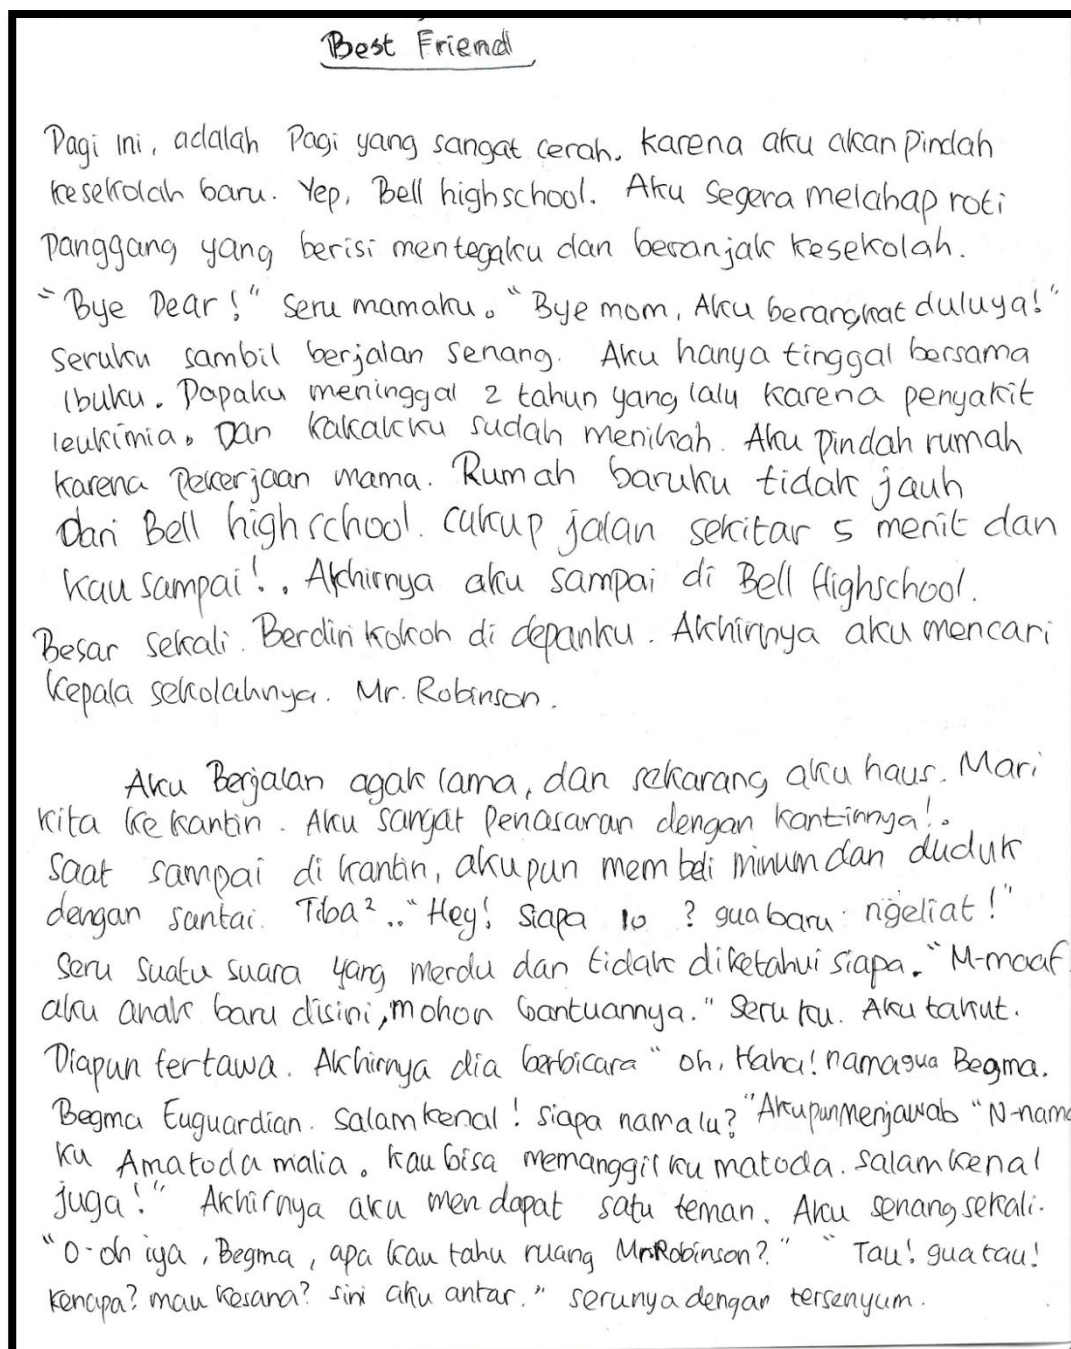 Best Friend
Pagi ini, adalah Pagi yang sangat cerah. Karena aku akan Pindah
kesekolah baru. Yep, Bell highschool. Aku Segera melahap roti
Panggang yang berisi mentegaku dan beranjak kesekolah.
"Bye Dear!" Seru mamaku. "Bye mom, Aku berangkat duluya!"
Seruku sambil berjalan senang. Aku hanya tinggal bersama
Ibuku. Papaku meninggal 2 tahun yang lalu karena penyakit
leukimia. Dan kakakku sudah menikah. Aku Pindah rumah
karena Pekerjaan mama. Rumah baruku tidak jauh
Dari Bell highschool. Cukup jalan sekitar 5 menit dan
kau sampai!. Akhirnya aku sampai di Bell Highschool.
Besar sekali. Berdiri kokoh di depanku. Akhirnya aku mencari
kepala sekolahnya. Mr. Robinson.
Aku Berjalan agak lama, dan sekarang aku haus. Mari
kita ke kantin. Aku sangat Penasaran dengan kantinnya!.
Saat sampai di kantin, akupun membeli minum dan duduk
dengan santai. Tiba².. "Hey! Siapa lo ? gua baru ngeliat!"
Seru suatu suara yang merdu dan tidak diketahui siapa. "M-maaf
aku anak baru disini, mohon bantuannya." Seru ku. Aku takut.
Diapun tertawa. Akhirnya dia berbicara "oh, Haha! namagua Begma.
Begma Euguardian. Salamkenal! siapa namalu?" Akupunmenjawab "N-nama
ku Amatoda malia. kau bisa memanggil ku matoda. salam kenal
juga!" Akhirnya aku mendapat satu teman. Aku senang sekali.
"O-oh iya, Begma, apa kau tahu ruang Mr.Robinson?" "Tau! gua tau!
kenapa? mau kesana? sini aku antar." serunya dengan tersenyum.